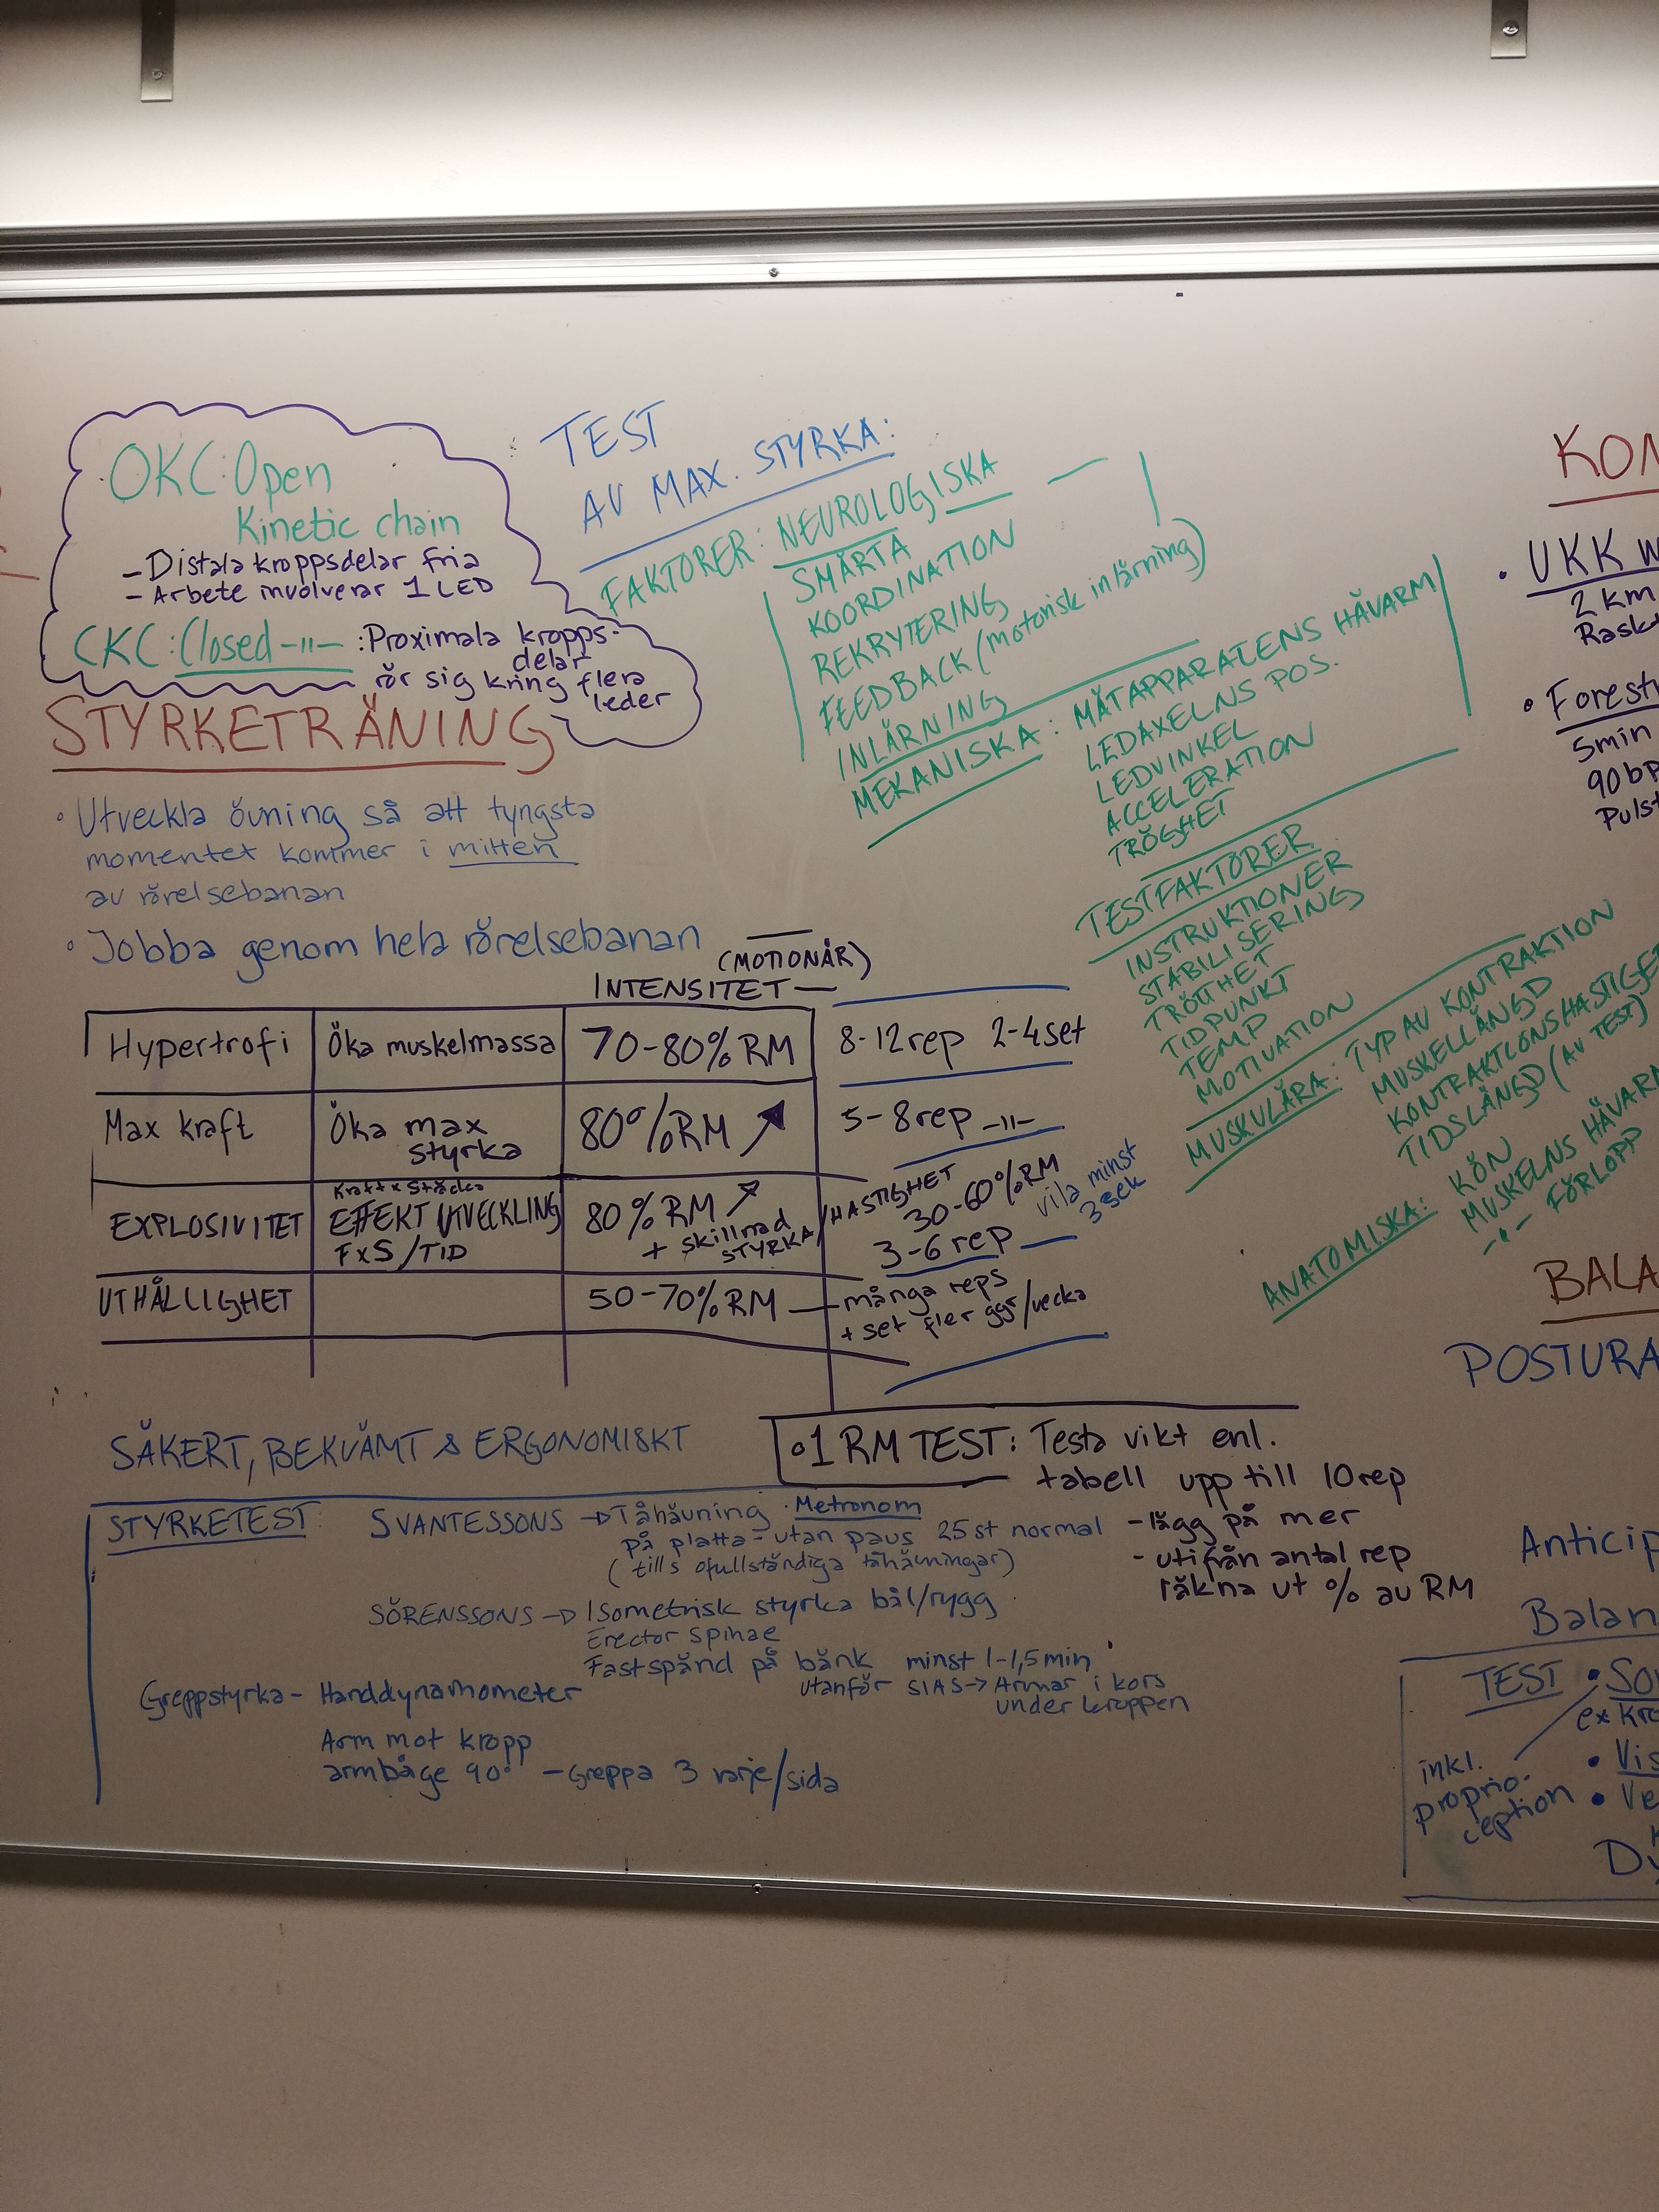 OKC: Open
Kinetic chain
- Distala kroppsdelar fria
- Arbete involverar 1 LED
CKC: Closed -11- : Proximala kropps-
delar
rör sig kring flera
leder
STYRKETRÄNING
• Utveckla övning så att tyngsta
momentet kommer i mitten
av rörelsebanan
• Jobba genom hela rörelsebanan
(MOTIONÄR)
INTENSITET —
Hypertrofi Öka muskelmassa 70-80% RM 8-12 rep 2-4 set
Max kraft Öka max
styrka
80% RM ↗ 5-8 rep -11-
EXPLOSIVITET Kraft x Sträcka
EFFEKT UTVECKLING
FxS/TID
80% RM ↗
+ skillnad
STYRKA/HASTIGHET
30-60% RM
3-6 rep —
vila minst
3 sek
UTHÅLLIGHET 50-70% RM — många reps
+ set fler ggr/vecka
SÄKERT, BEKVÄMT & ERGONOMISKT
• 1 RM TEST: Testa vikt enl.
tabell upp till 10 rep
- lägg på mer
- utifrån antal rep
räkna ut % av RM
STYRKETEST
SVANTESSONS → Tåhävning • Metronom
på platta - utan paus 25 st normal
(tills ofullständiga tåhävningar)
SÖRENSSONS → Isometrisk styrka bål/rygg
Erector spinae
Fastspänd på bänk minst 1-1,5 min
utanför SIAS → Armar i kors
under kroppen
Greppstyrka - Handdynamometer
Arm mot kropp
armbåge 90° - Greppa 3 varje/sida
TEST
AV MAX. STYRKA:
FAKTORER: NEUROLOGISKA
SMÄRTA
KOORDINATION
REKRYTERING
FEEDBACK (motorisk inlärning)
INLÄRNING
MEKANISKA: MÄTAPPARATENS HÄVARM
LEDAXELNS POS.
LEDVINKEL
ACCELERATION
TRÖGHET
TESTFAKTORER
INSTRUKTIONER
STABILISERING
TRÖTTHET
TIDPUNKT
TEMP
MOTIVATION
MUSKULÄRA: TYP AV KONTRAKTION
MUSKELLÄNGD
KONTRAKTIONSHASTIGHE
TIDSLÄNGD (AV TEST)
ANATOMISKA: KÖN
MUSKELNS HÄVARM
-"- FÖRLOPP
KON
• UKK W
2 km
Rask
• Forest
5min
90 bp
Puls
BALA
POSTURA
Anticip
Balan
TEST • So
ex kr
inkl.
proprio-
ception
• Vis
• Ve
Dy